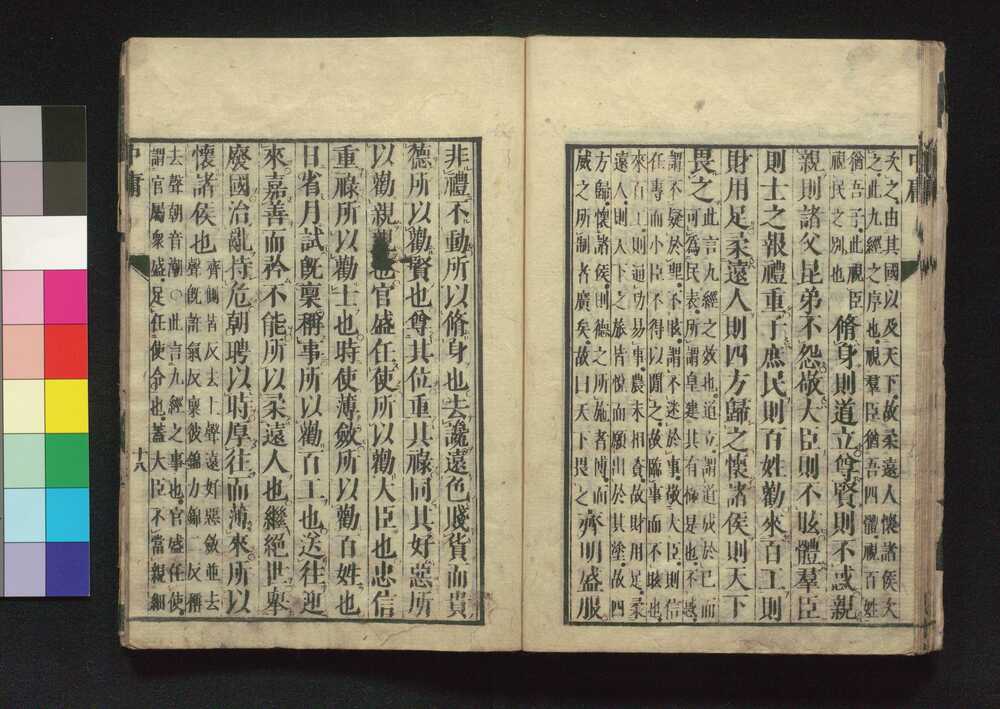 次之由其國以及天下故柔遠人懷諸侯次
之此九經之序也視羣臣猶吾四體視百姓
猶吾子此視臣
視民之別也
脩身則道立尊賢則不惑親
親則諸父昆弟不怨敬大臣則不眩體羣臣
則士之報禮重子庶民則百姓勸來百工則
財用足柔遠人則四方歸之懷諸侯則天下
畏之
此言九經之效也道立謂道成於己而
可爲民表所謂皇建其有極是也不惑
謂不疑於理不眩謂不迷於事敬大臣則信
任專而小臣不得以間之故臨事而不眩也
來百工則通功易事農末相資故財用足柔
遠人則天下之旅皆悅而願出於其塗故四
方歸懷諸侯則德之所施者博而
威之所制者廣矣故曰天下畏之
齊明盛服
非禮不動所以脩身也去讒遠色賤貨而貴
德所以勸賢也尊其位重其祿同其好惡所
以勸親親也官盛任使所以勸大臣也忠信
重祿所以勸士也時使薄斂所以勸百姓也
日省月試既稟稱事所以勸百工也送往迎
來嘉善而矜不能所以柔遠人也繼絕世舉
廢國治亂持危朝聘以時厚往而薄來所以
懷諸侯也
齊側皆反去上聲遠好惡斂並去
聲既許氣反稟彼錦力錦二反稱
去聲朝音潮○此言九經之事也官盛任使
謂官屬衆盛足任使令也蓋大臣不當親細
中庸
十八